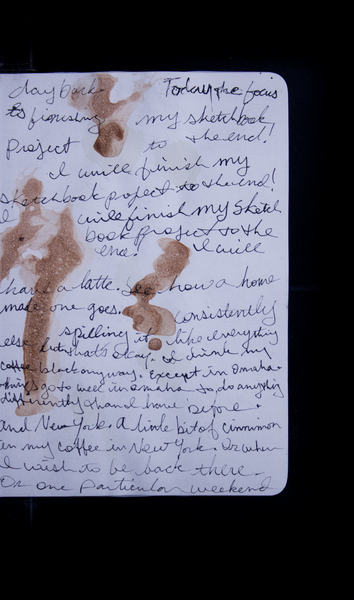 daybook Today the focus
is finishing my sketchbook
project to the end!
I will finish my
sketchbook project to the end!
I will finish my sketch
book project to the
end! I will
have a latte. See how a home
made one goes. Consistently
spilling it, like everything
else but that's okay. I drink my
coffee black anyway. Except in Omaha.
things go so well in Omaha to do anything
differently than I have before.
and New York. A little bit of cinnimon
in my coffee in New York. Or when
I wish to be back there.
On one particular weekend